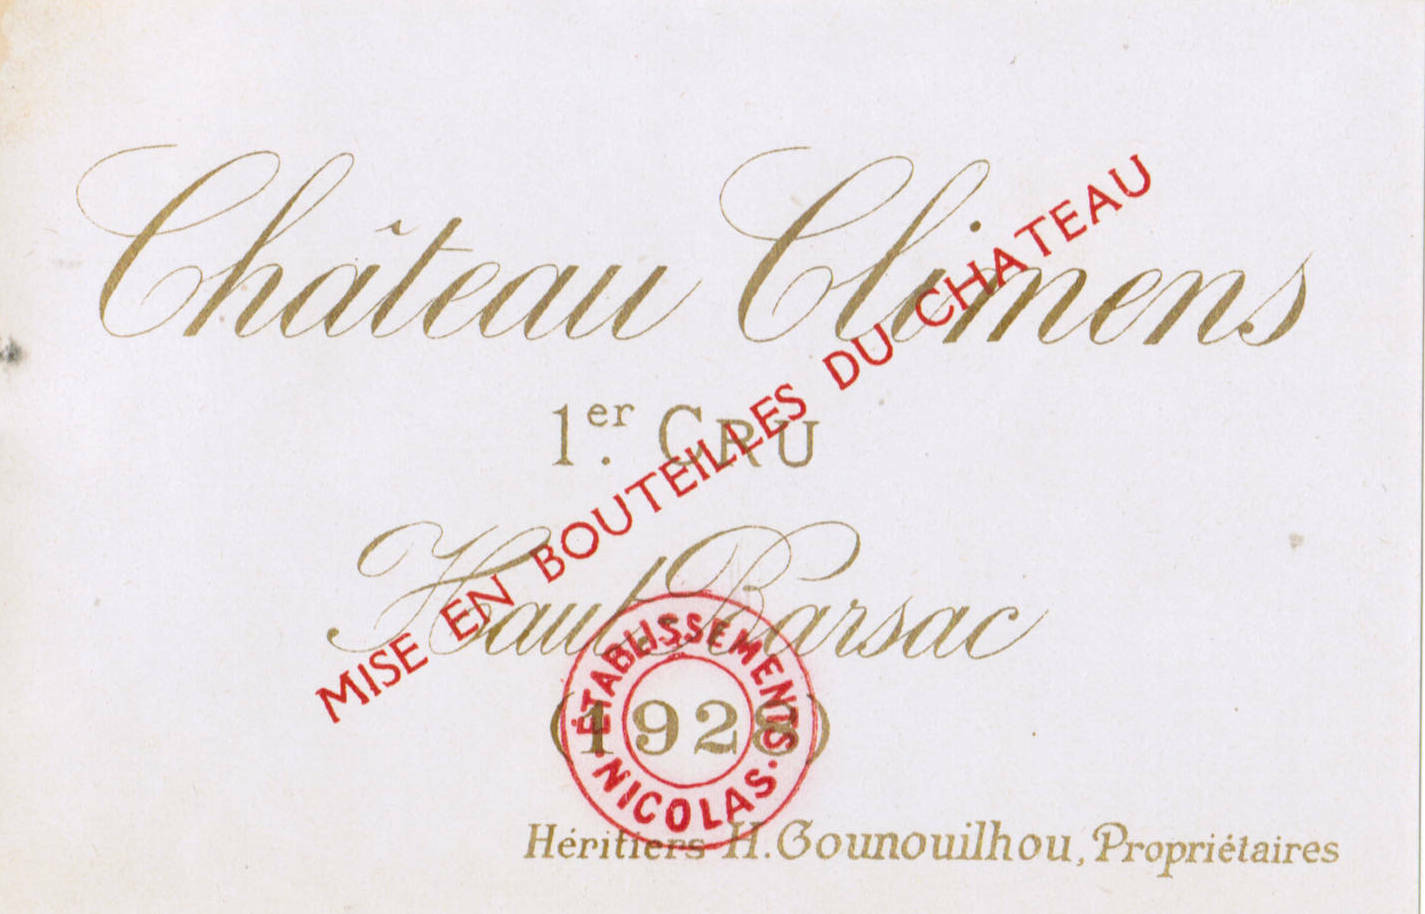 Château Climens
1er. CRU
MISE EN BOUTEILLES DU CHATEAU
Haut Barsac
(1928)
ÉTABLISSEMENTS
NICOLAS
Héritiers H. Gounouilhou, Propriétaires